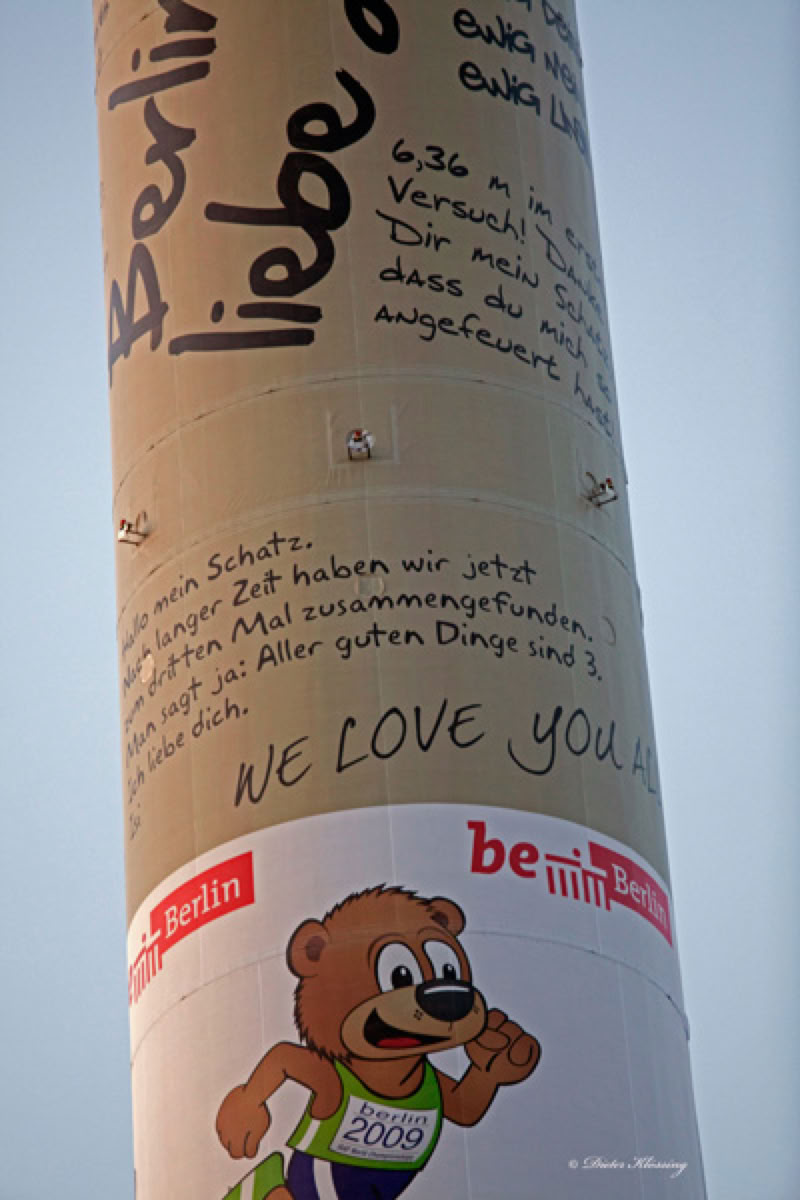 Berlin
liebe
EWIG
EWIG
6,36 m im
Versuch! Danke
Dir mein Schatz
dass du mich so
angefeuert hast
Hallo mein Schatz.
Nach langer Zeit haben wir jetzt
zum dritten Mal zusammengefunden.
Man sagt ja: Aller guten Dinge sind 3.
Ich liebe dich.
Isi
WE LOVE YOU
be Berlin
Berlin
berlin
2009
© Dieter Klössing